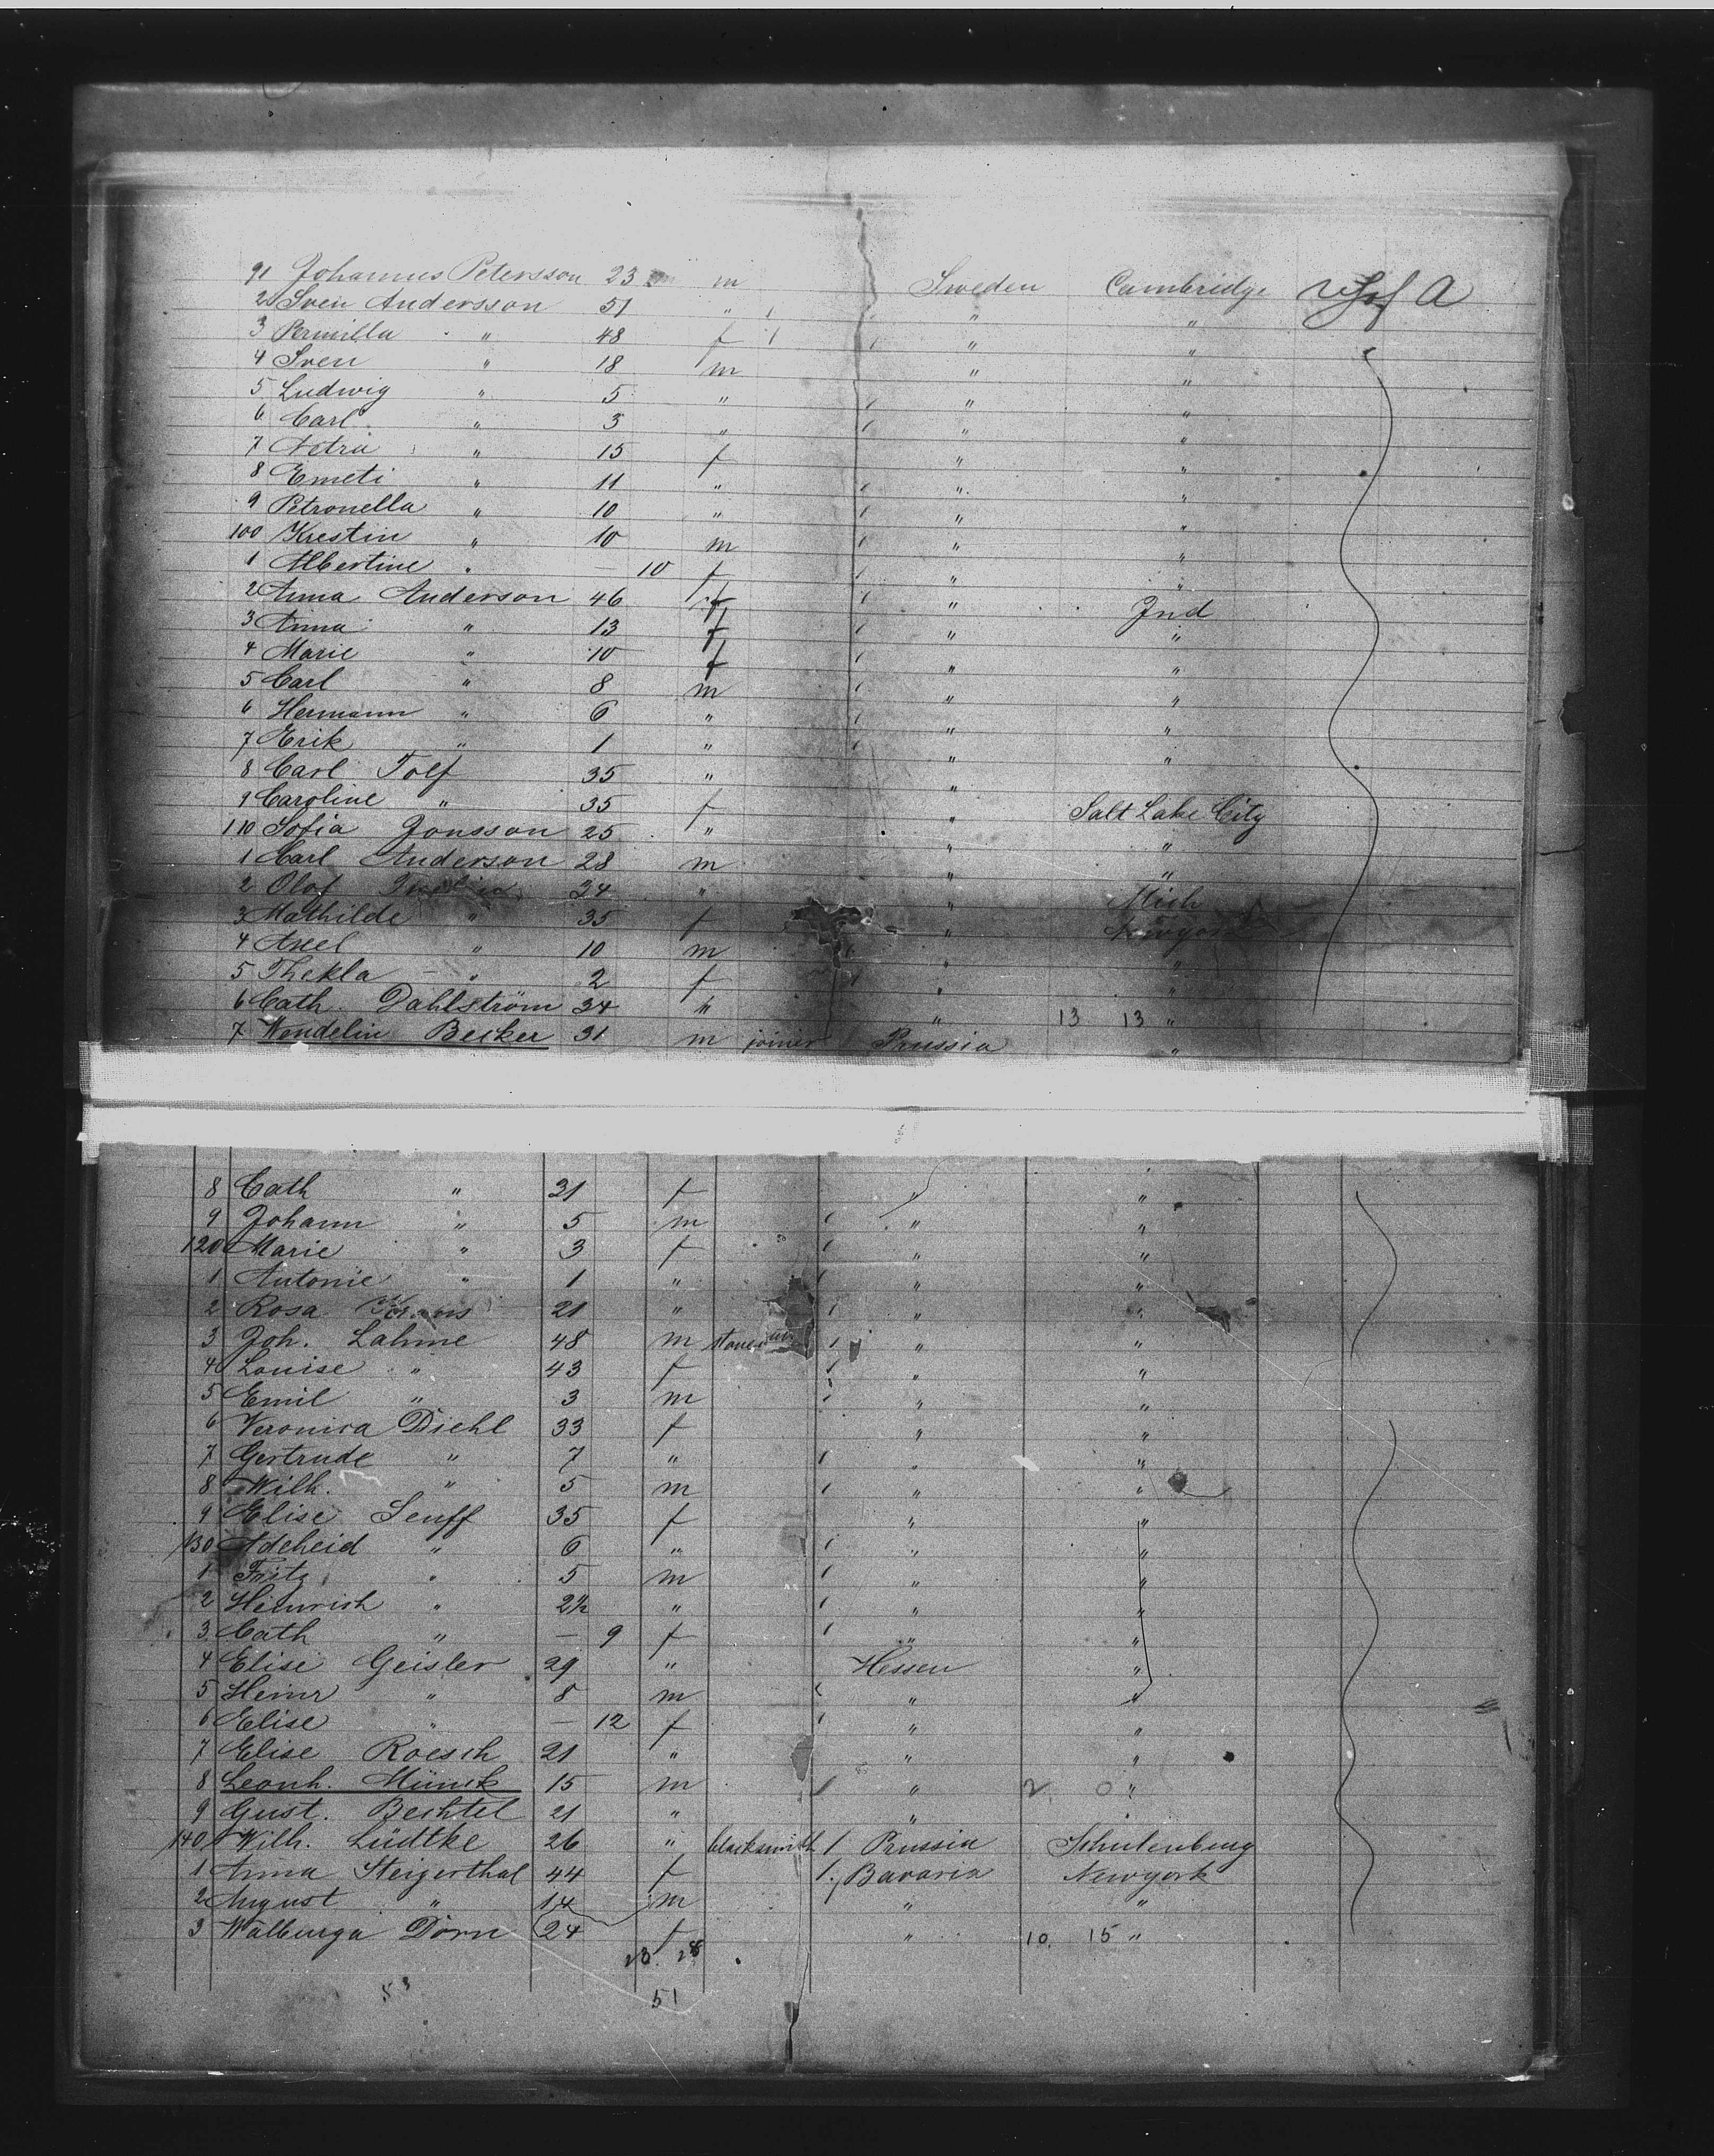 91 Johannes Petersson 23 m Sweden Cambridge U S of A
2 Sven Andersson 51 " " "
3 Pernilla " 48 f " "
4 Sven " 18 m " "
5 Ludwig " 5 " " "
6 Carl " 3 " " "
7 Netria " 15 f " "
8 Emeti " 11 " " "
9 Petronella " 10 " " "
100 Krestin " 10 m " "
1 Albertine " — 10 f " "
2 Anna Anderson 46 f " Ind
3 Anna " 13 f " "
4 Marie " 10 f " "
5 Carl " 8 m " "
6 Hermann " 6 " " "
7 Erik " 1 " " "
8 Carl Tolf 35 " "
9 Caroline " 35 f " Salt Lake City
110 Sofia Jonsson 25 " " "
1 Carl Anderson 28 m " "
2 Olof 34 " " Mich
3 Mathilde " 35 f " Newyork
4 Axel " 10 m " "
5 Thekla " 2 f " "
6 Cath Dahlström 34 " " 13 13 "
7 Wendelin Becker 31 m joiner Prussia "
8 Cath " 31 f " "
9 Johann " 5 m " "
120 Marie " 3 f " "
1 Antonie " 1 " " "
2 Rosa 21 " " "
3 Joh. Lahme 48 m " "
4 Louise " 43 f " "
5 Emil " 3 m " "
6 Veronica Diehl 33 f " "
7 Gertrude " 7 " " "
8 Wilh. " 5 m " "
9 Elise Senff 35 f " "
130 Adeheid " 6 " " "
1 Fritz " 5 m " "
2 Heinrich " 2½ " " "
3 Cath " — 9 f " "
4 Elise Geisler 29 " Hessen "
5 Heinr " 8 m " "
6 Elise " — 12 f " "
7 Elise Roesch 21 " " "
8 Leonh. Münck 15 m " 2 0 "
9 Gust. Bechtel 21 " " "
140 Wilh. Lüdtke 26 " blacksmith 1 Prussia Schulenburg
1 Anna Steigerthal 44 f 1 Bavaria Newyork
2 August " 14 m " "
3 Walburga Dorn 24 f " 10. 15 "
23. 28
53 51